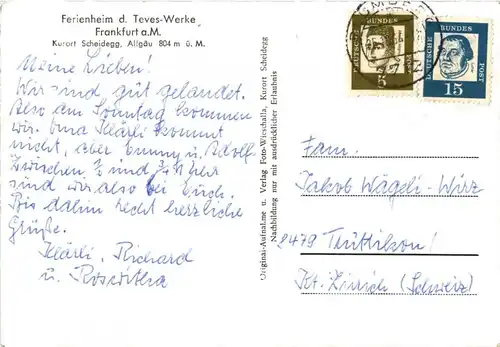 Ferienheim d. Teves-Werke
Frankfurt a.M.
Kurort Scheidegg, Allgäu 804 m ü. M.
Meine Lieben!
Wir sind gut gelandet.
Also am Sonntag kommen
wir. Oma Klärli kommt
nicht, aber Emmy u. Adolf.
Zwischen ½ und ¾ Uhr
sind wir also bei Euch.
Bis dahin recht herzliche
Grüße.
Klärli, Richard
u. Roswitha
Original-Aufnahme u. Verlag Foto-Wirschalla, Kurort Scheidegg
Nachbildung nur mit ausdrücklicher Erlaubnis
DEUTSCHE BUNDES POST
5
DEUTSCHE BUNDES POST
15
Fam.
Jakob Wägeli-Wirz
8479 Trüttikon!
Kt. Zürich (Schweiz)